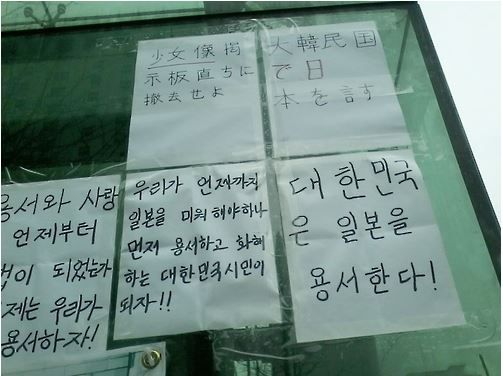 少女像掲
示板直ちに
撤去せよ
大韓民国
で日
本を言す
용서와 사랑
언제부터
법이 되었는가
제는 우리가
용서하자!
우리가 언제까지
일본을 미워해야하나
먼저 용서하고 화해
하는 대한민국시민이
되자!!
대한민국
은 일본을
용서한다!